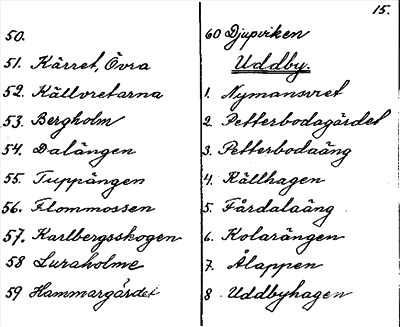 15.
50.
51. Kärret, Övra
52. Källvretarna
53. Bergholm
54. Dalängen
55. Tuppängen
56. Flommossen
57. Karlbergsskogen
58 Luraholme
59 Hammargärdet
60 Djupviken
Uddby.
1. Nymansvret
2. Petterbodagärdet
3. Petterbodaäng
4. Källhagen
5. Fårdalaäng
6. Kolarängen
7. Ålappen
8. Uddbyhagen